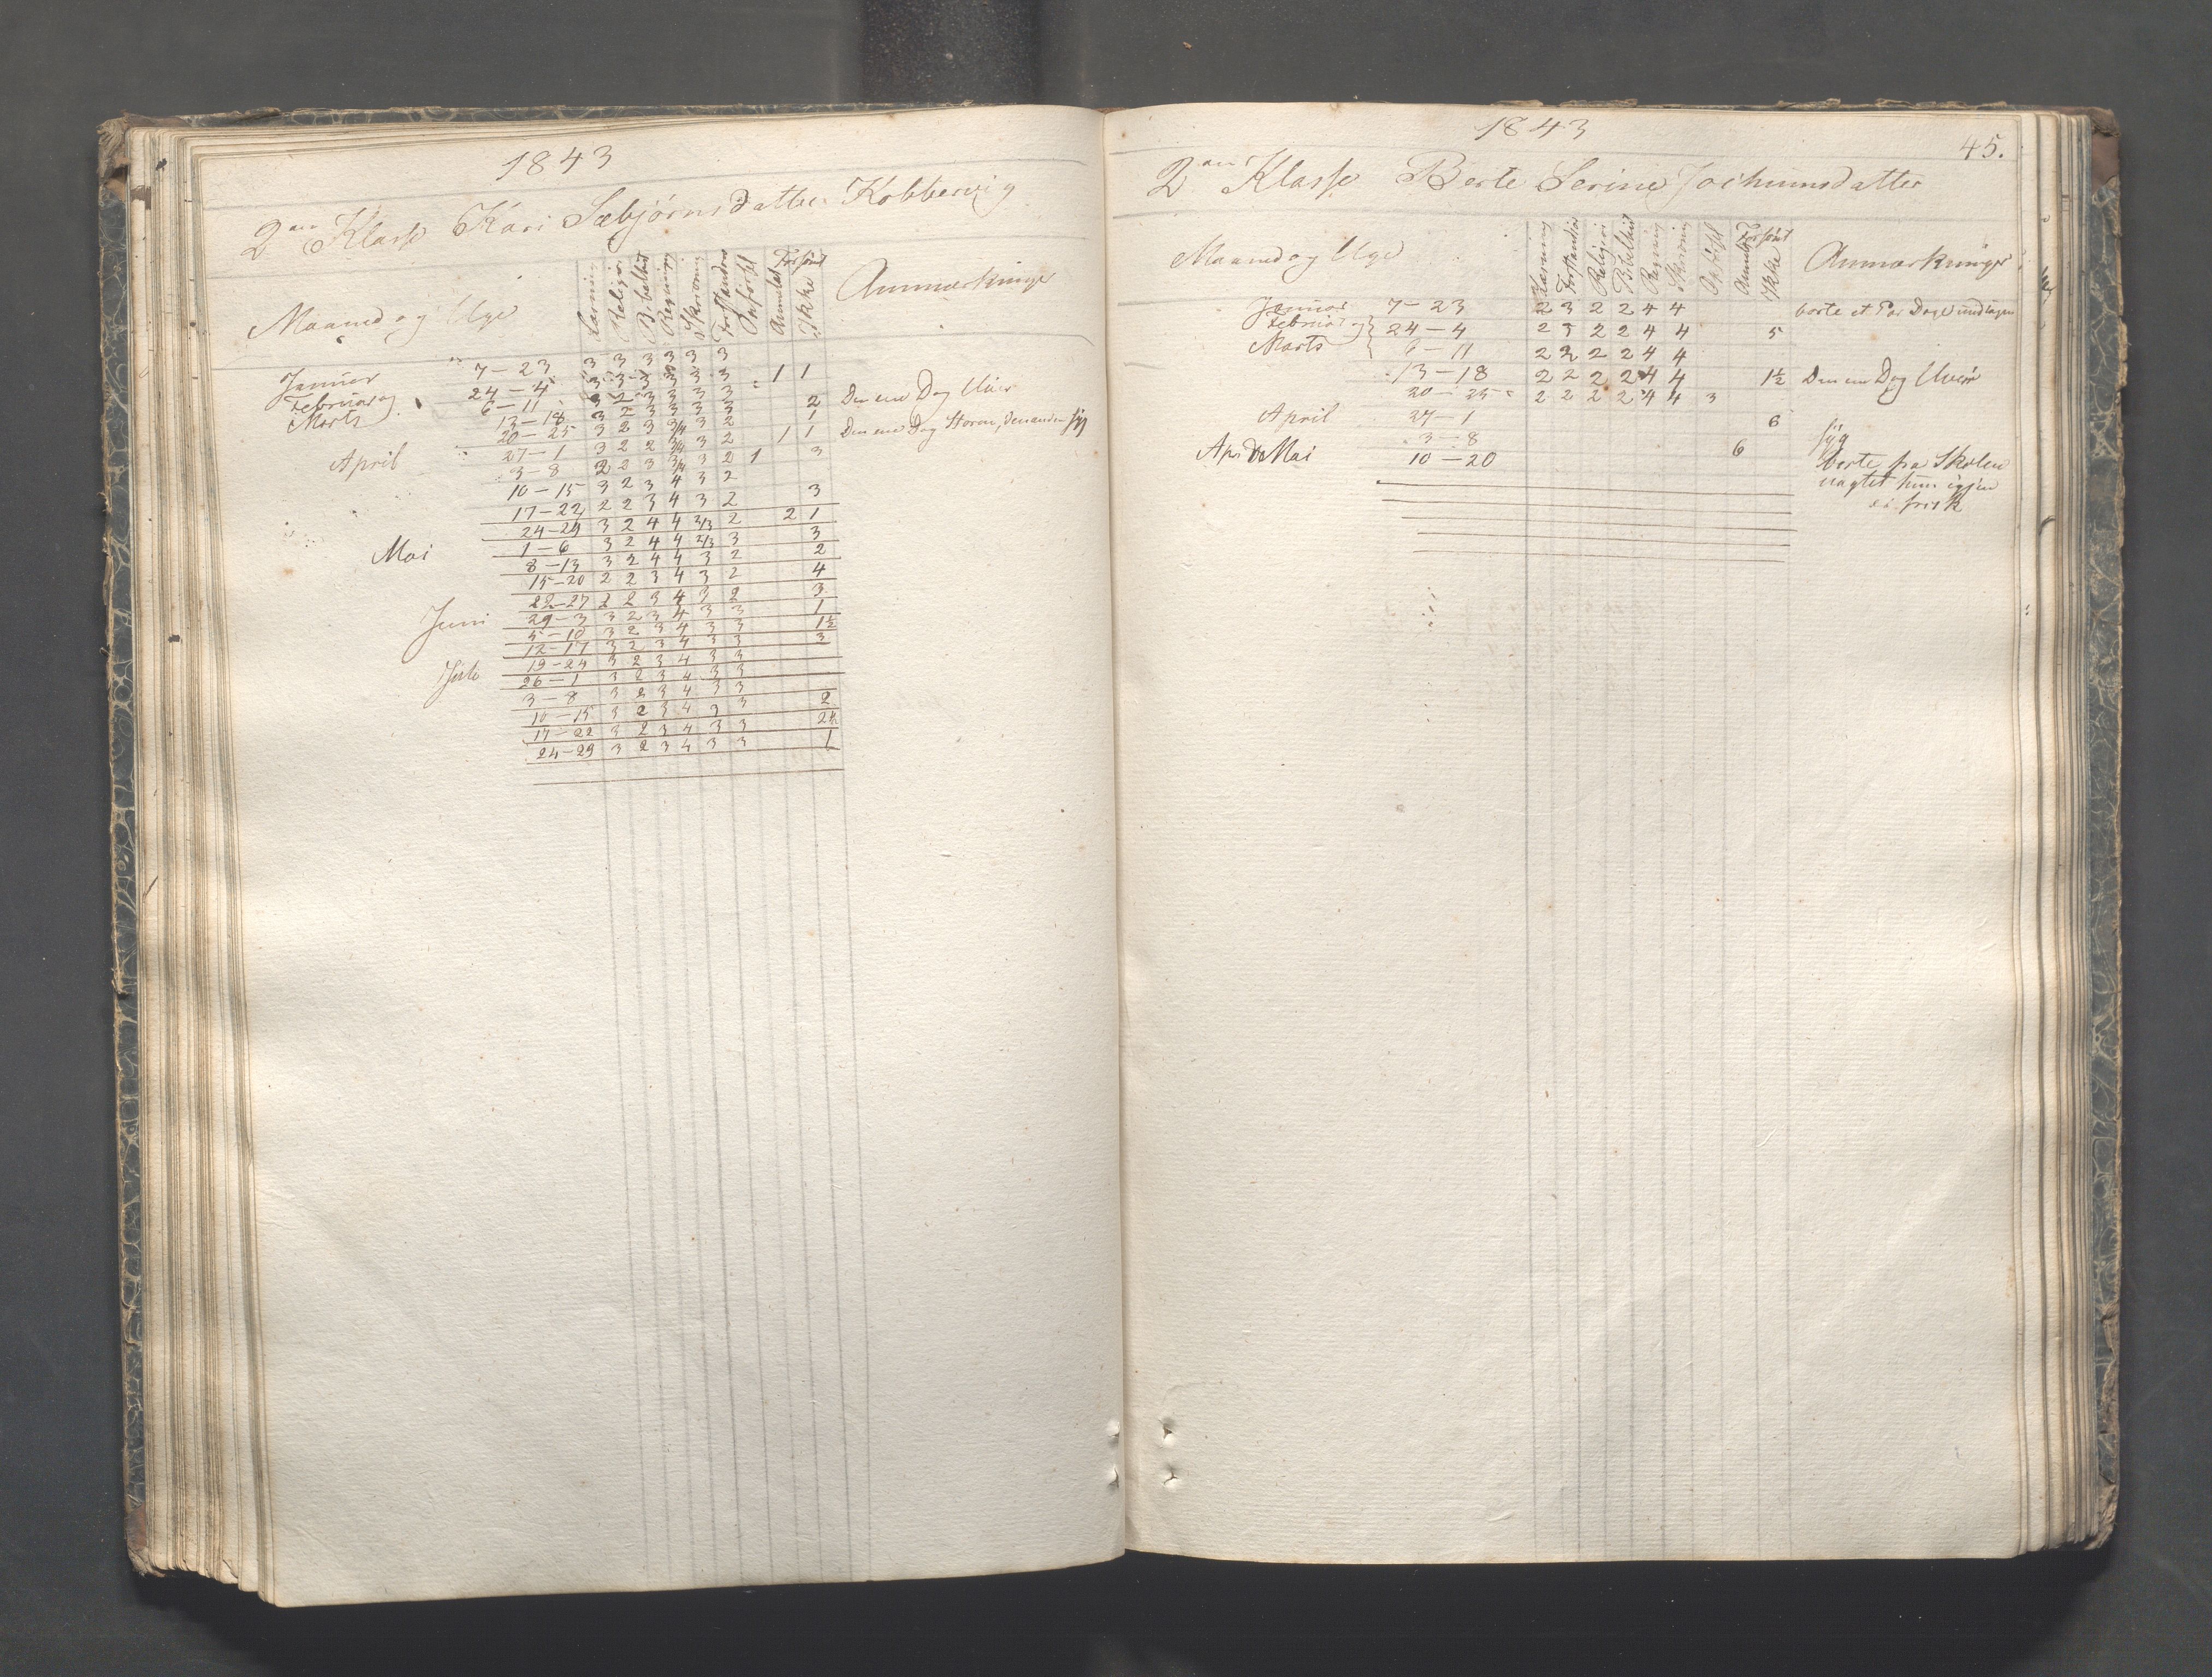 1843
2den Klasse Kari Sæbjørnsdatter Kobbervig
Maaned og Uge Læsning Religion Bibelhist Regning Skrivning Forstanden Opførsel Forsømt Anmeldt Ikke Anmærkninger
Januar 7–23 3 3 3 3 3 3
Februar og 24–4 3 3 3 3 3 3 1 1
Marts 6–11 3 2 3 3 3 3
13–18 3 2 3 3 3 3 2 Den ene Dag Uveir
20–25 3 2 3 3/4 3 2 1
April 27–1 3 2 2 3/4 3 2 1 1 Den ene Dag Storm, den anden syg
3–8 2 2 3 3/4 3 2 1 3
10–15 3 2 3 4 3 2
17–22 2 2 3 4 3 2 3
24–29 3 2 4 4 2/3 2 2 1
Mai 1–6 3 2 4 4 2/3 3 3
8–13 3 2 4 4 3 2 2
15–20 2 2 3 4 3 2 4
22–27 2 2 3 4 3 2 3
Juni 29–3 3 2 3 4 3 3 1
5–10 3 2 3 4 3 3 1½
12–17 3 2 3 4 3 3 3
19–24 3 2 3 4 3 3
Juli 26–1 3 2 3 4 3 3
3–8 3 2 3 4 3 3
10–15 3 2 3 4 3 3 2
17–22 3 2 3 4 3 3 2½
24–29 3 2 3 4 3 3 1
1843
45.
2den Klasse Berte Serine Jochumsdatter
Maaned og Uge Læsning Forstanden Religion Bibelhist Regning Skrivning Opførsel Forsømt Anmeldt Ikke Anmærkninger
Januar 7–23 2 3 2 2 4 4 borte et Par Dage undtagen
Februar og 24–4 2 3 2 2 4 4 5
Marts 6–11 2 2 2 2 4 4
13–18 2 2 2 2 4 4 1½ Den ene Dag Uveir
20–25 2 2 2 2 4 4 3
April 27–1 6
3–8 6 syg
Apr. Mai 10–20 borte fra Skolen
uagtet hun igjen
er frisk